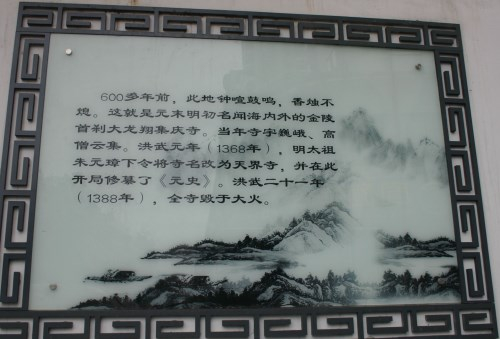 600多年前，此地钟喧鼓鸣，香烛不
熄。这就是元末明初名闻海内外的金陵
首刹大龙翔集庆寺。当年寺宇巍峨、高
僧云集。洪武元年（1368年），明太祖
朱元璋下令将寺名改为天界寺，并在此
开局修纂了《元史》。洪武二十一年
（1388年），全寺毁于大火。